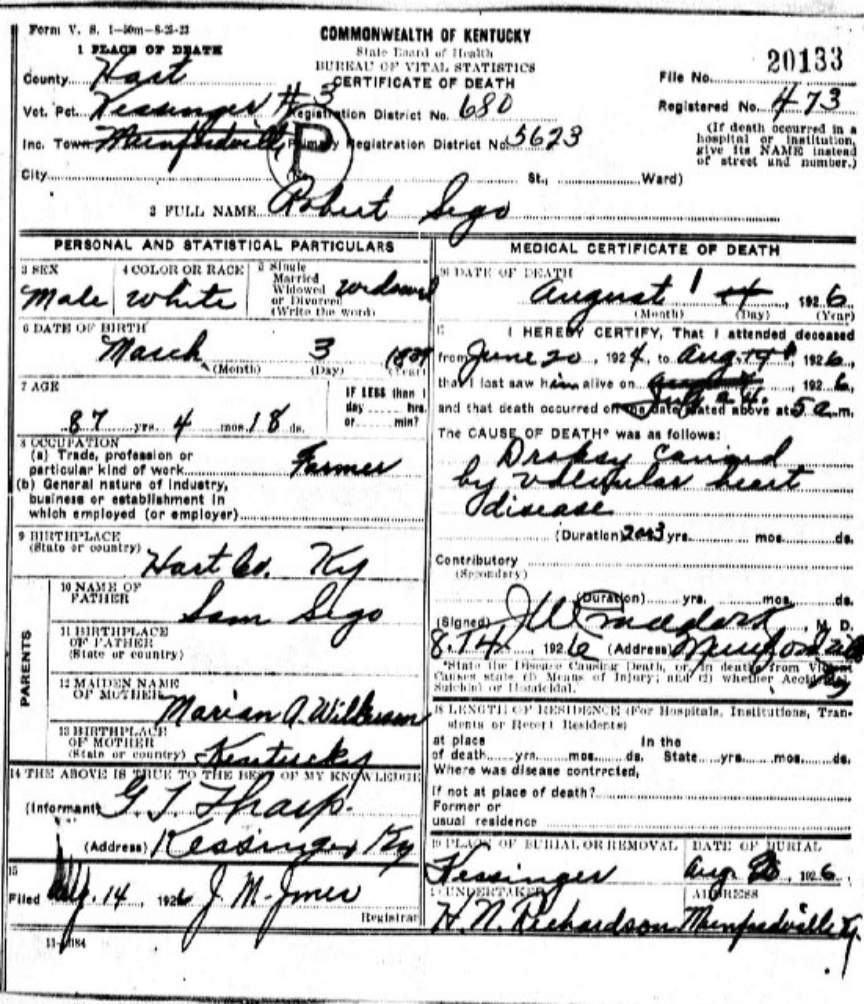 Form V. S. 1-50m-8-25-23
COMMONWEALTH OF KENTUCKY
State Board of Health
BUREAU OF VITAL STATISTICS
CERTIFICATE OF DEATH
1 PLACE OF DEATH
County Hart
Vot. Pct. Kessinger #3 Registration District No. 680
Inc. Town Munfordville Primary Registration District No. 5623
City (No. St., Ward)
P
File No. 20133
Registered No. 473
(If death occurred in a
hospital or institution,
give its NAME instead
of street and number.)
2 FULL NAME Robert Sego
PERSONAL AND STATISTICAL PARTICULARS
3 SEX
Male
4 COLOR OR RACE
White
5 Single
Married
Widowed
or Divorced
(Write the word)
widowed
6 DATE OF BIRTH
March 3 1839
(Month) (Day) (Year)
7 AGE
87 yrs. 4 mos. 18 ds.
IF LESS than 1
day hrs.
or min?
8 OCCUPATION
(a) Trade, profession or
particular kind of work Farmer
(b) General nature of industry,
business or establishment in
which employed (or employer)
9 BIRTHPLACE
(State or country)
Hart Co. Ky
PARENTS
10 NAME OF
FATHER
Sam Sego
11 BIRTHPLACE
OF FATHER
(State or country)
12 MAIDEN NAME
OF MOTHER
Marian A. Wilkerson
13 BIRTHPLACE
OF MOTHER
(State or country) Kentucky
14 THE ABOVE IS TRUE TO THE BEST OF MY KNOWLEDGE
(Informant) G. T. Tharp
(Address) Kessinger Ky
15
Filed Aug. 14, 1926 J. M. Jones
Registrar
11-1184
MEDICAL CERTIFICATE OF DEATH
16 DATE OF DEATH
August 1 4, 1926
(Month) (Day) (Year)
17 I HEREBY CERTIFY, That I attended deceased
from June 20, 1924, to Aug., 1926,
that I last saw him alive on July 24, 1926,
and that death occurred on the date stated above at 5 a.m.
The CAUSE OF DEATH* was as follows:
Dropsy caused
by valvular heart
disease
(Duration) 2 or 3 yrs. mos. ds.
Contributory
(Secondary)
(Duration) yrs. mos. ds.
(Signed) M. D.
8.14, 1926 (Address) Munfordville Ky
*State the Disease Causing Death, or, in deaths from Violent
Causes state (1) Means of Injury; and (2) whether Accidental,
Suicidal or Homicidal.
18 LENGTH OF RESIDENCE (For Hospitals, Institutions, Tran-
sients or Recent Residents)
at place In the
of death yrs. mos. ds. State yrs. mos. ds.
Where was disease contracted,
if not at place of death?
Former or
usual residence
19 PLACE OF BURIAL OR REMOVAL
Kessinger
DATE OF BURIAL
Aug., 1926
20 UNDERTAKER
H. N. Richardson
ADDRESS
Munfordville Ky.